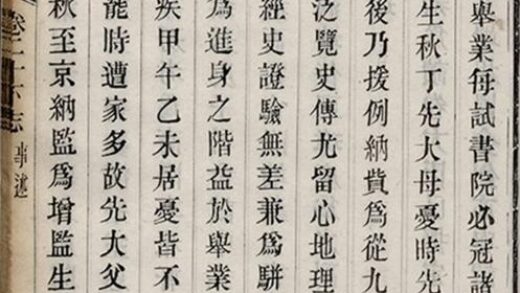 舉業每試書院必冠諸
生秋丁先大母憂時先
後乃援例納貲爲從九
泛覽史傳尤留心地理
經史證驗無差兼爲駢
爲進身之階益於舉業
疾甲午乙未居憂皆不
龍時遭家多故先大父
秋至京納監爲增監生
卷二十六志 事述